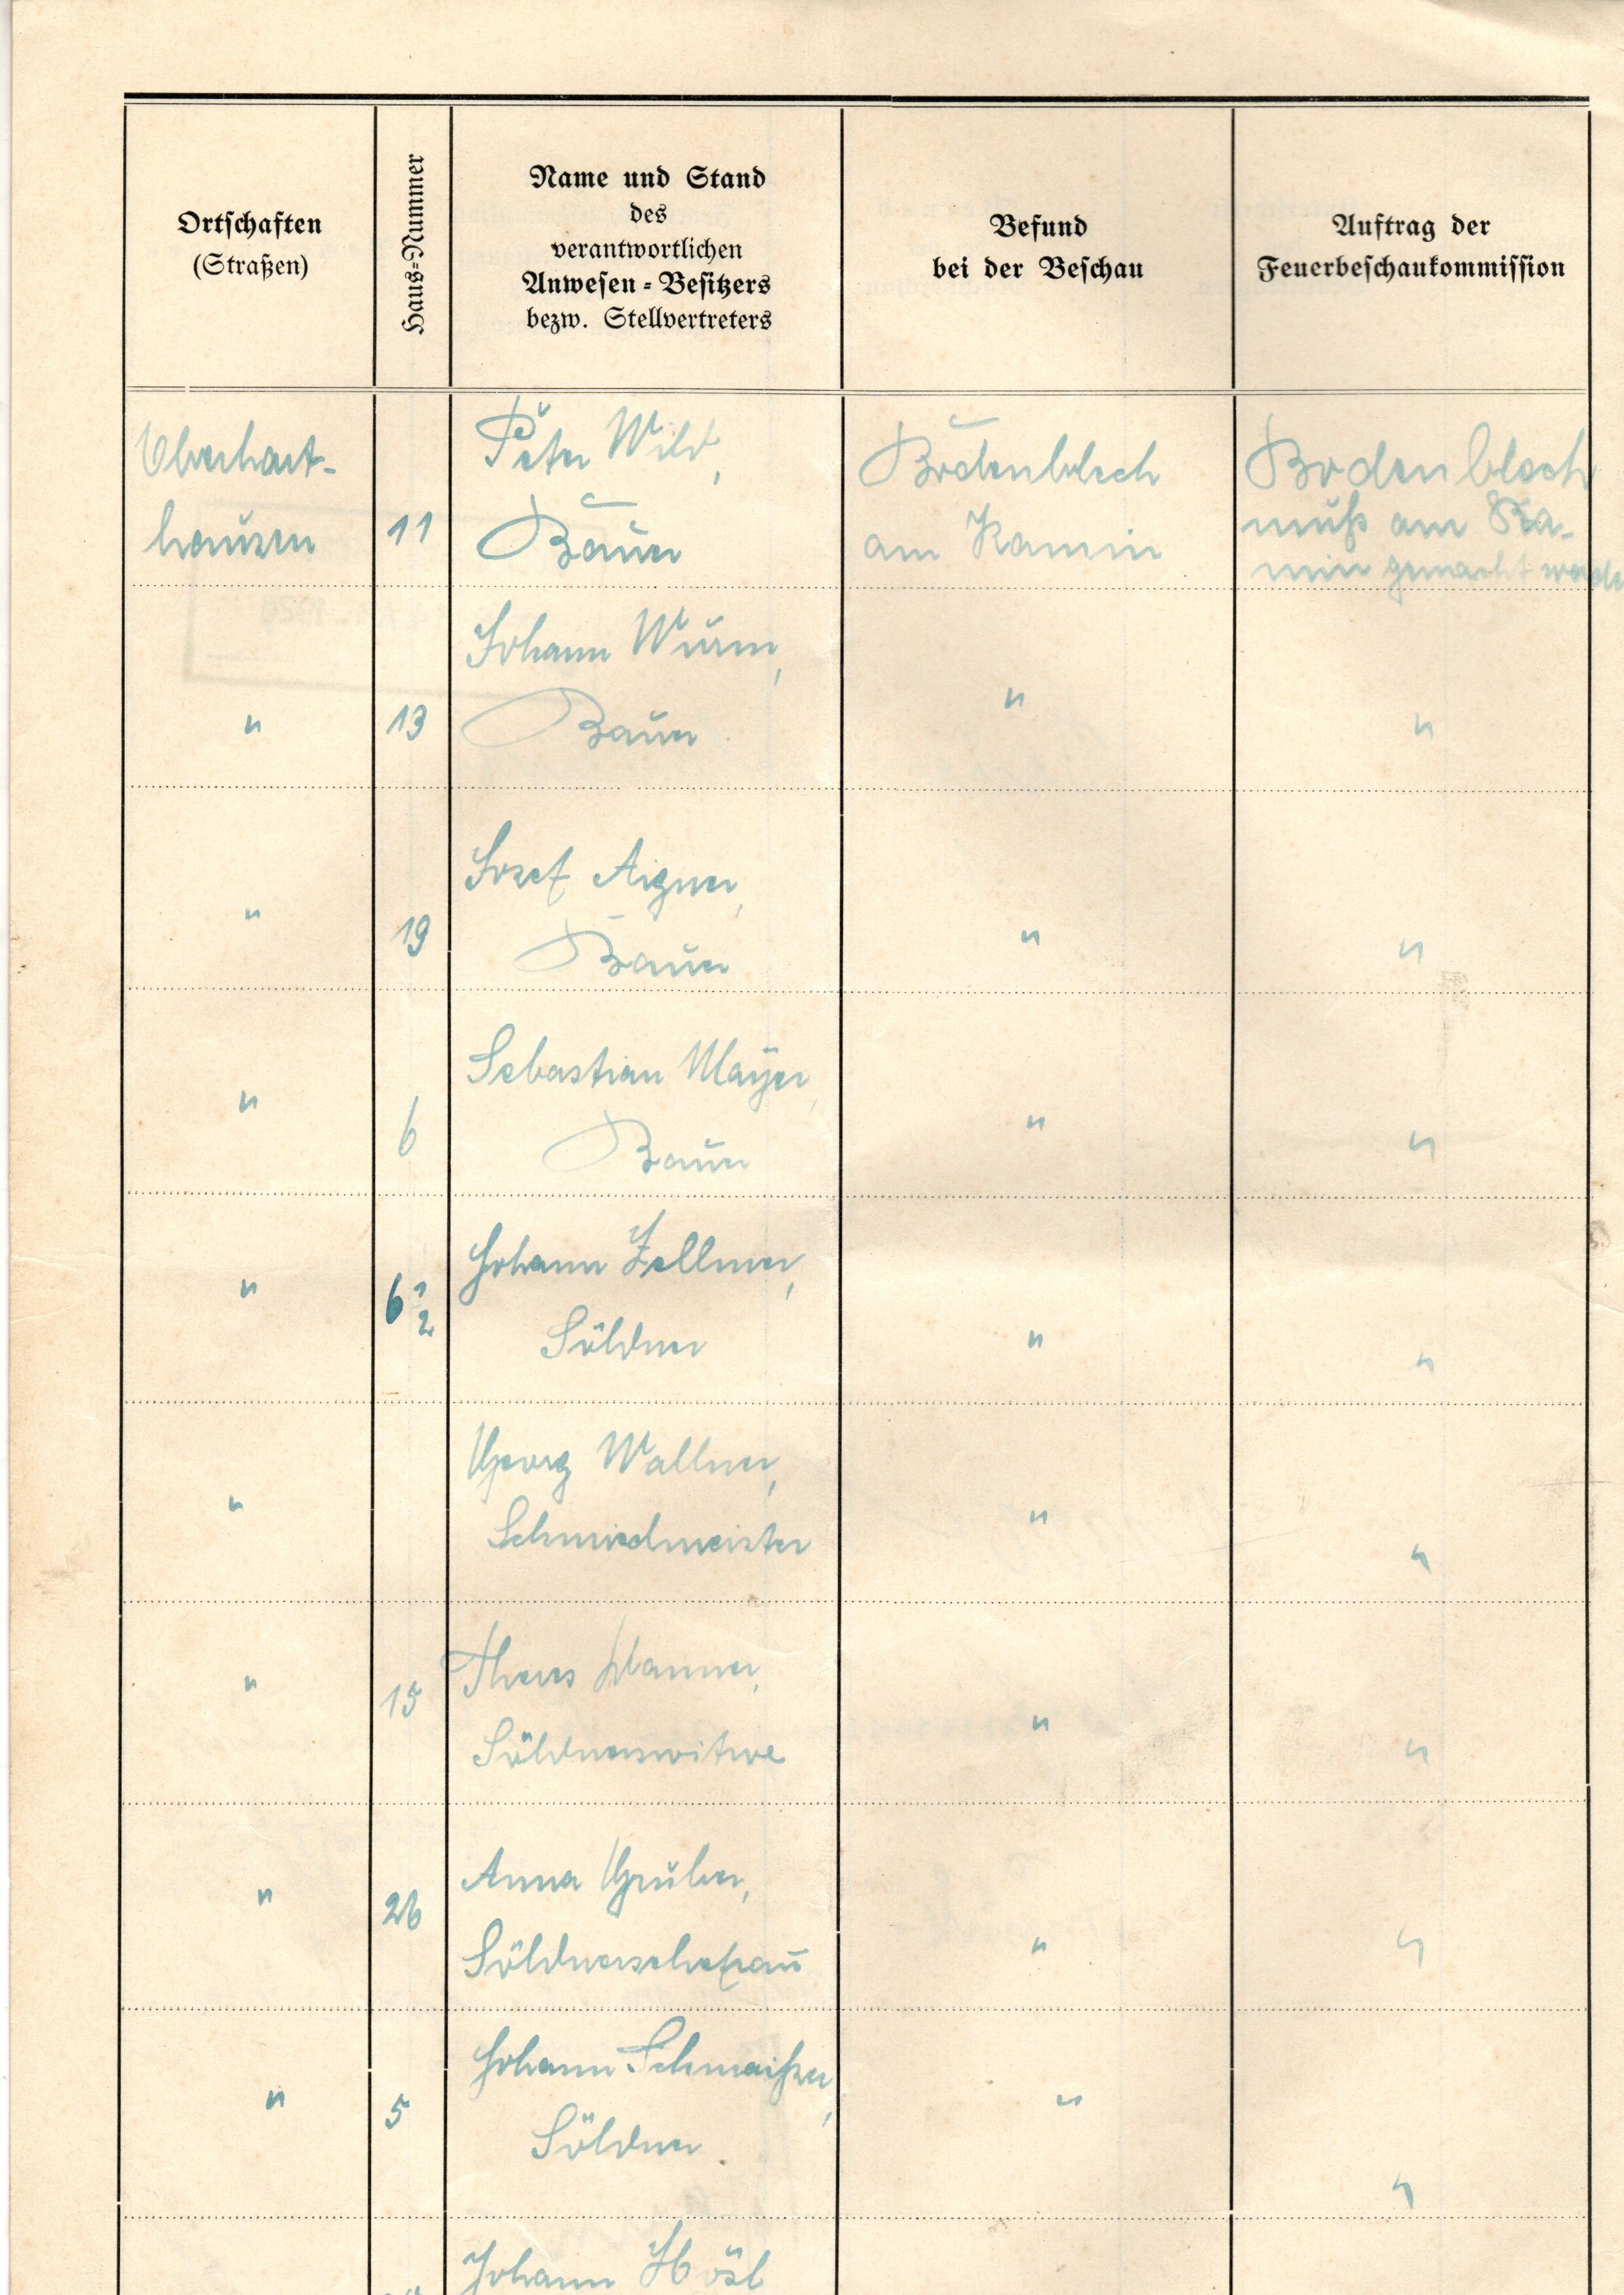 Ortschaften
(Straßen)
Haus-Nummer
Name und Stand
des
verantwortlichen
Anwesen-Besitzers
bezw. Stellvertreters
Befund
bei der Beschau
Auftrag der
Feuerbeschaukommission
Oberhart-
hausen
11
Peter Wild,
Bauer
Bodenblech
am Kamin
Bodenblech
muß am Ka-
min gemacht werde
"
13
Johann Wurm,
Bauer
"
"
"
19
Josef Aigner,
Bauer
"
"
"
6
Sebastian Mayer,
Bauer
"
"
"
6 1/2
Johann Zellmer,
Söldner
"
"
"
Georg Wallner,
Schmiedmeister
"
"
"
15
Theres
Söldnerswitwe
"
"
"
26
Anna Gruber,
Söldnersehefrau
"
"
"
5
Johann Schmaißer,
Söldner
"
"
Johann Hösl